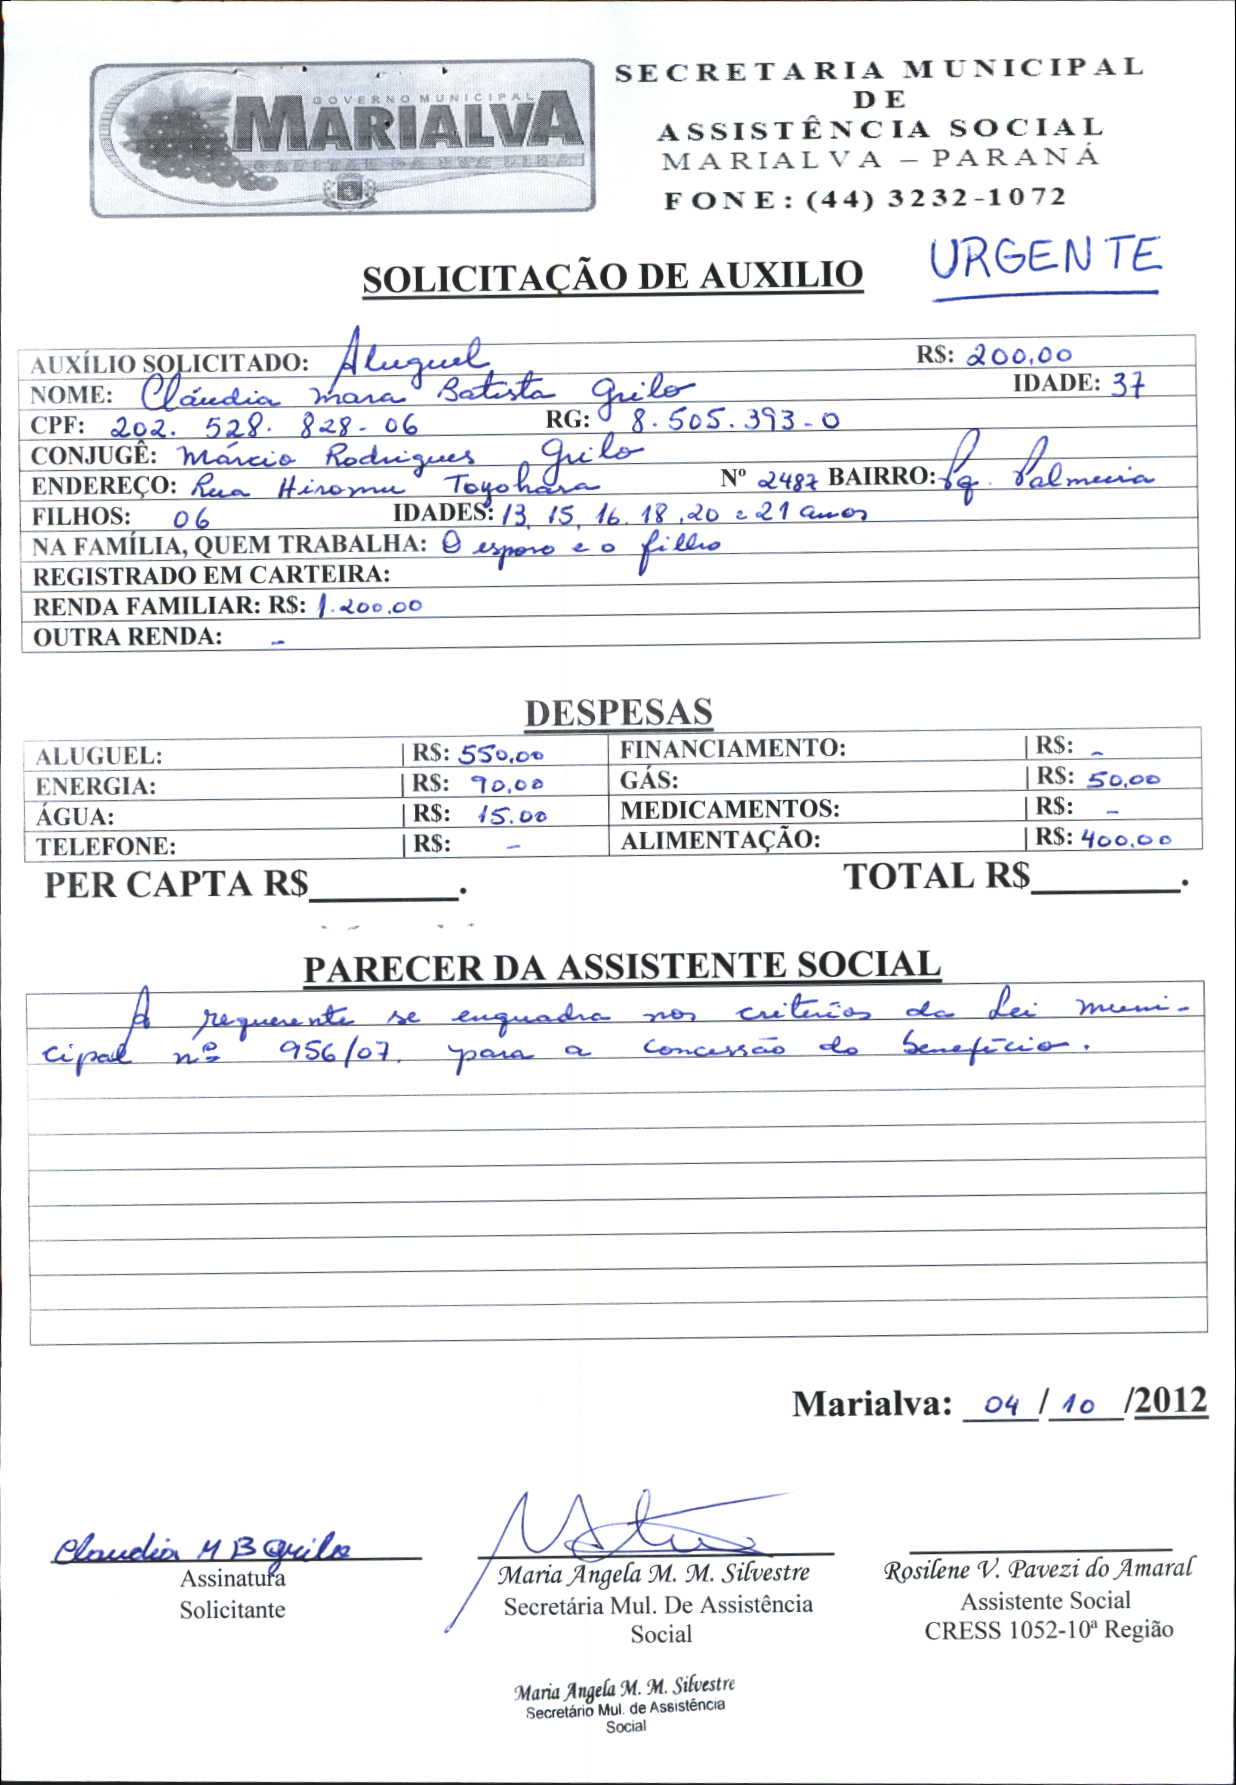 GOVERNO MUNICIPAL
MARIALVA
CAPITAL DA UVA FINA
SECRETARIA MUNICIPAL
DE
ASSISTÊNCIA SOCIAL
MARIALVA – PARANÁ
FONE: (44) 3232-1072
SOLICITAÇÃO DE AUXILIO
URGENTE
AUXÍLIO SOLICITADO: Aluguel R$: 200,00
NOME: Cláudia Mara Batista Grilo IDADE: 37
CPF: 202. 528. 828-06 RG: 8.505.393-0
CONJUGÊ: Márcio Rodrigues Grilo
ENDEREÇO: Rua Hiromu Toyohara Nº 2487 BAIRRO: Pq. Palmeira
FILHOS: 06 IDADES: 13, 15, 16, 18, 20 e 21 anos
NA FAMÍLIA, QUEM TRABALHA: O esposo e o filho
REGISTRADO EM CARTEIRA:
RENDA FAMILIAR: R$: 1.200,00
OUTRA RENDA: -
DESPESAS
ALUGUEL: | R$: 550,00 FINANCIAMENTO: | R$: -
ENERGIA: | R$: 90,00 GÁS: | R$: 50,00
ÁGUA: | R$: 15.00 MEDICAMENTOS: | R$: -
TELEFONE: | R$: - ALIMENTAÇÃO: | R$: 400,00
PER CAPTA R$________. TOTAL R$________.
PARECER DA ASSISTENTE SOCIAL
A requerente se enquadra nos critérios da Lei muni-
cipal nº 956/07. para a concessão do benefício.
Marialva: 04 / 10 /2012
Claudia M B Grilo
Assinatura
Solicitante
Maria Angela M. M. Silvestre
Secretária Mul. De Assistência
Social
Rosilene V. Pavezi do Amaral
Assistente Social
CRESS 1052-10ª Região
Maria Angela M. M. Silvestre
Secretário Mul. de Assistência
Social